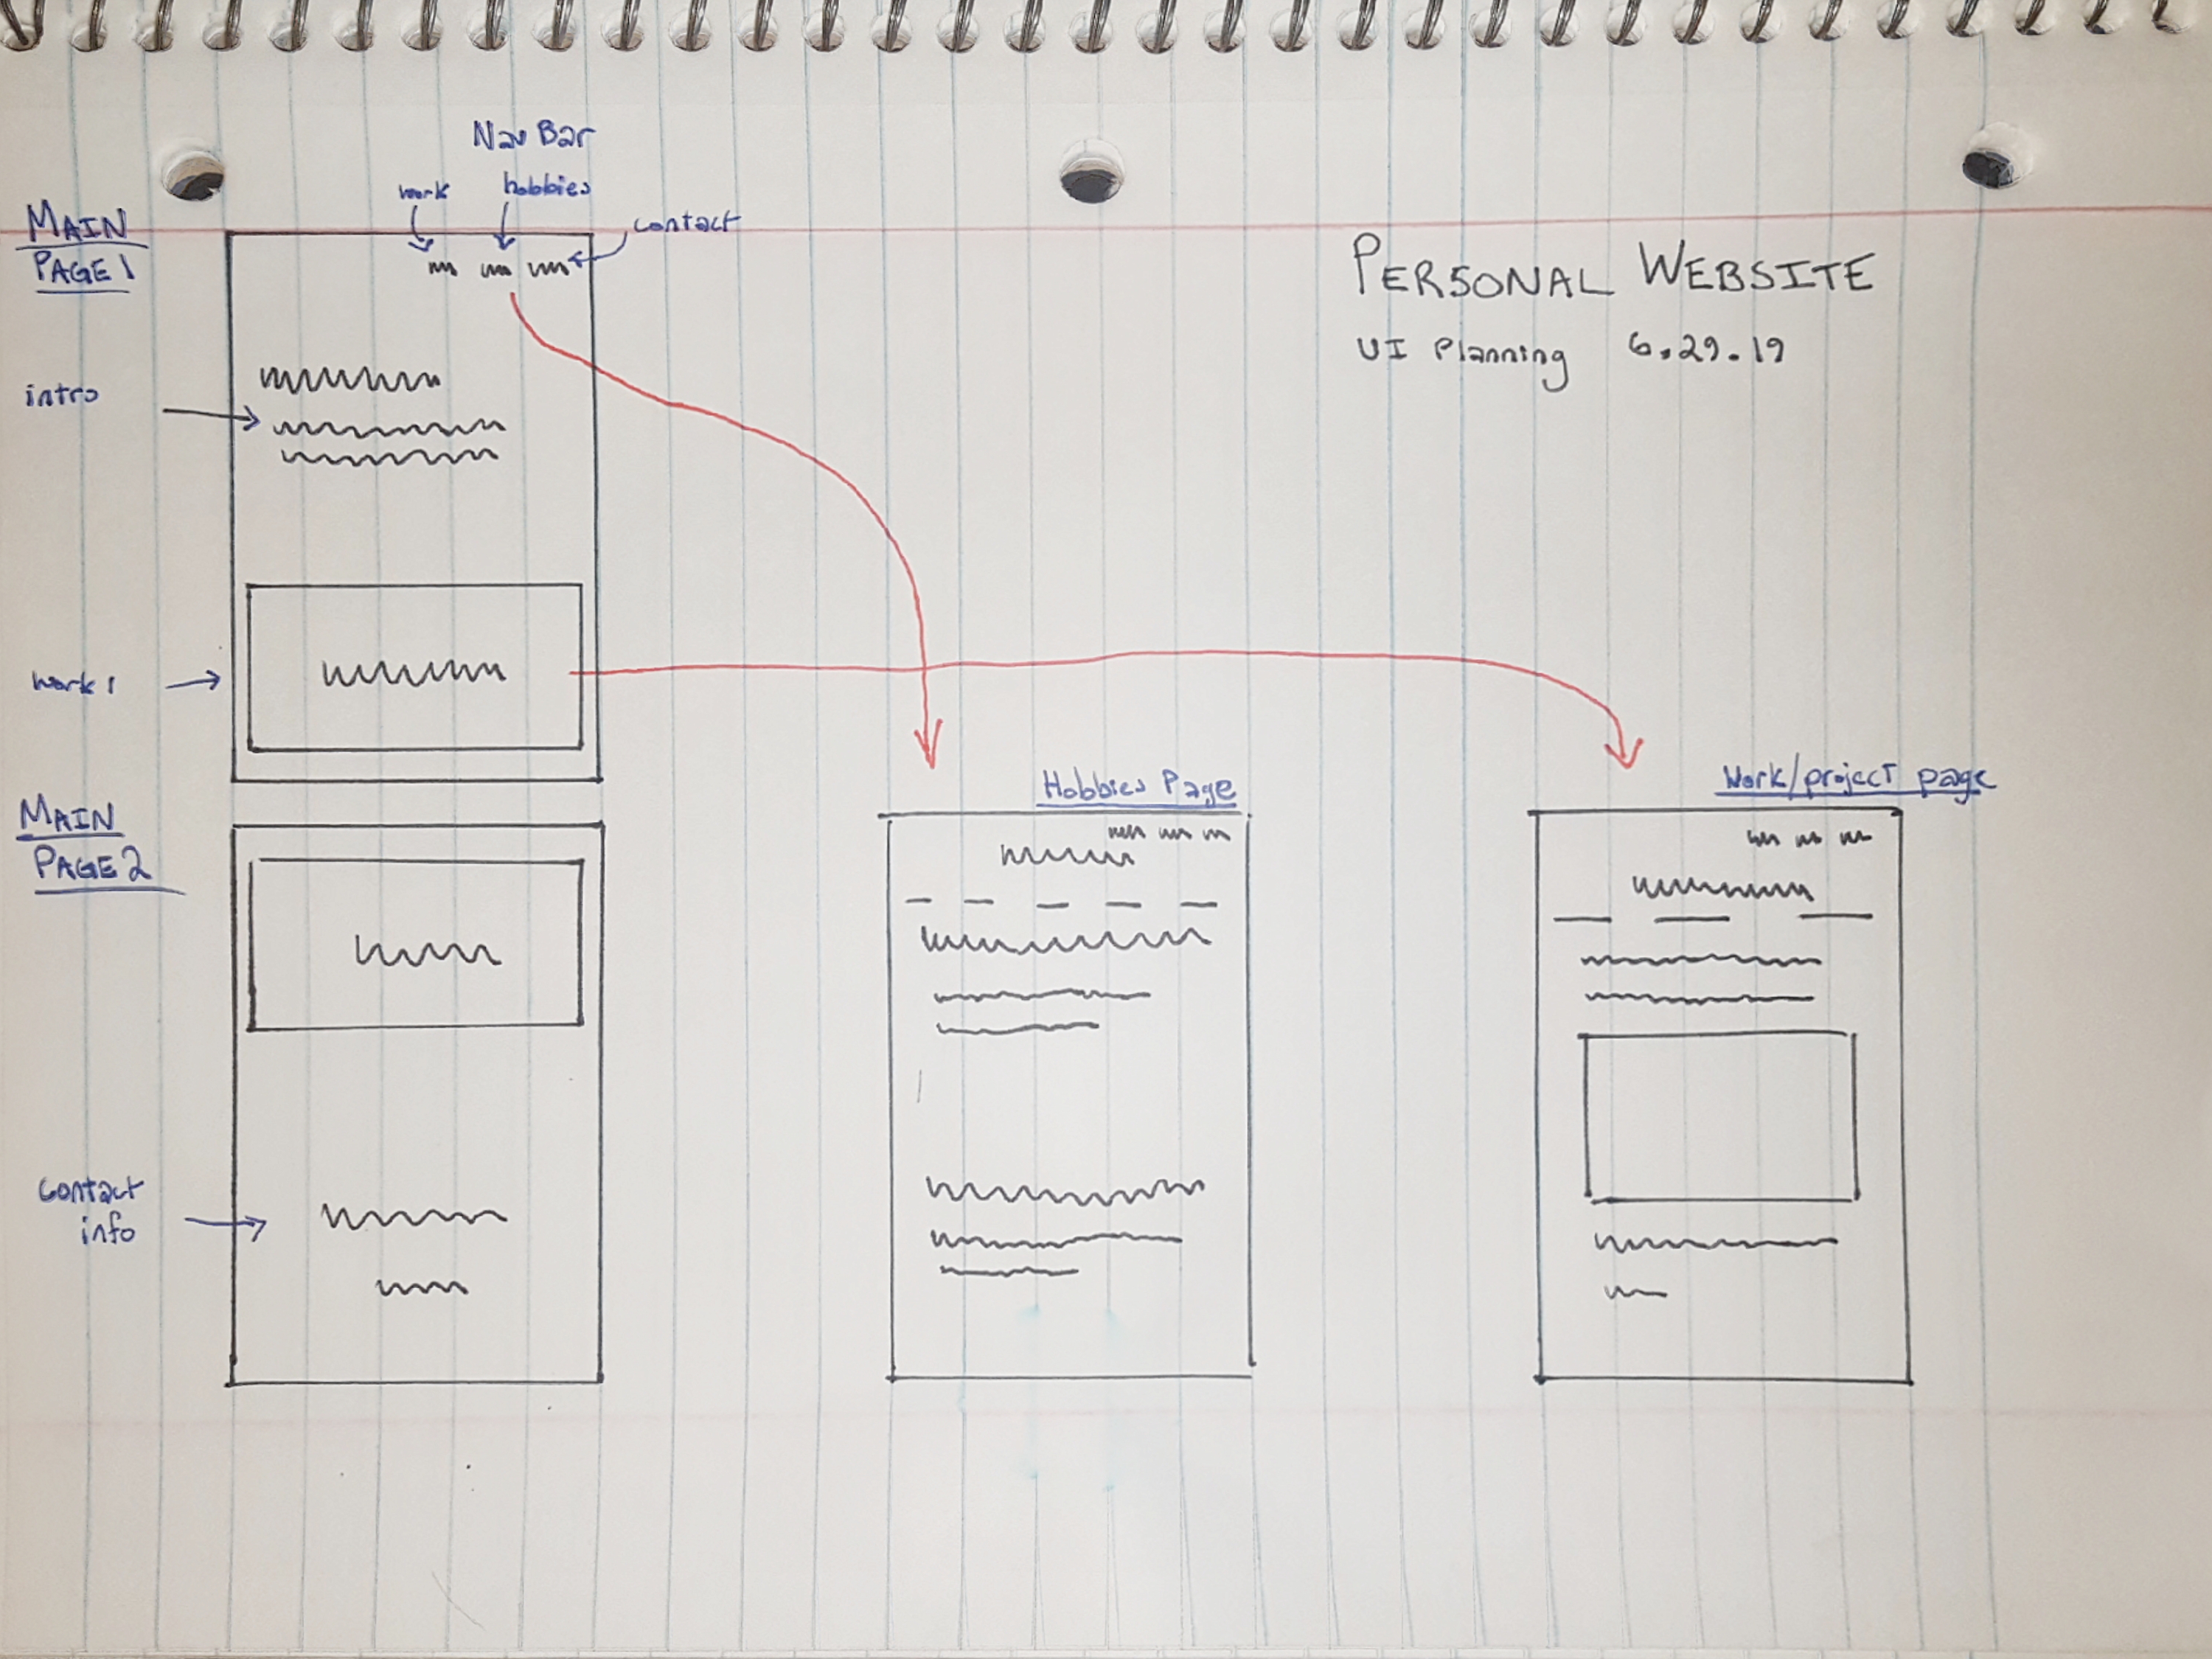 PERSONAL WEBSITE
UI Planning 6.29.19
Nav Bar
work
hobbies
contact
MAIN
PAGE 1
intro
work 1
MAIN
PAGE 2
Contact
info
Hobbies Page
Work/project page